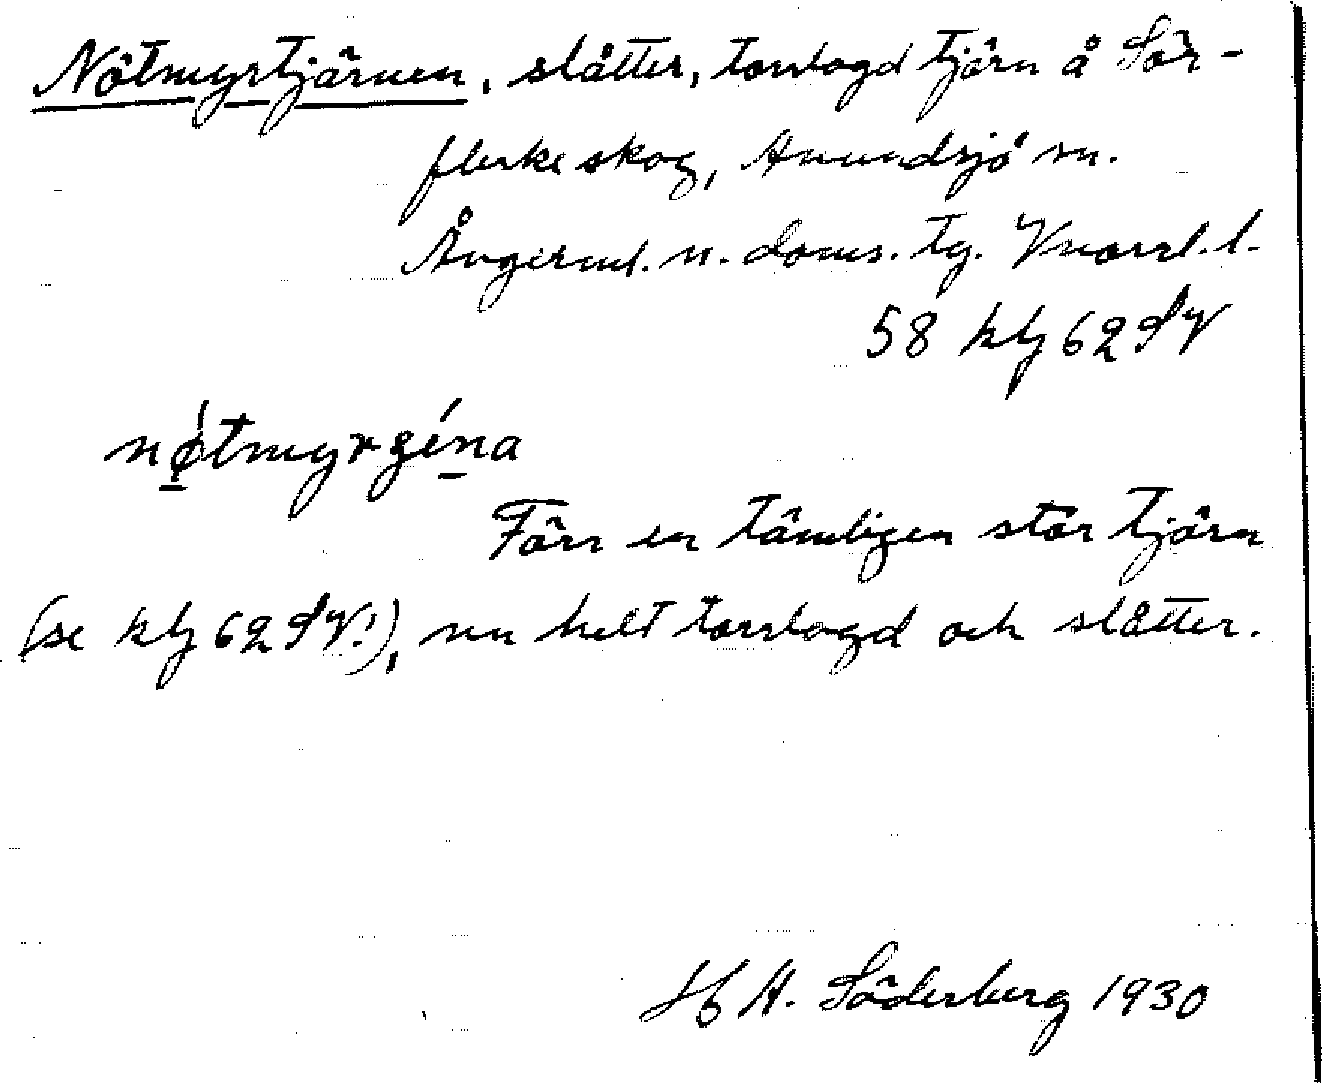 Nötmyrtjärnen, slåtter, torrlagd tjärn å Sör-
flerke skog, Anundsjö sn.
Ångerml. n. doms. tg. Vnorrl. l.
58 klj 62 SV
nø̀tmyrǥéna
Förr en tämligen stor tjärn
(se klj 62 SV!), nu helt torrlagd och slåtter.
H A. Söderberg 1930